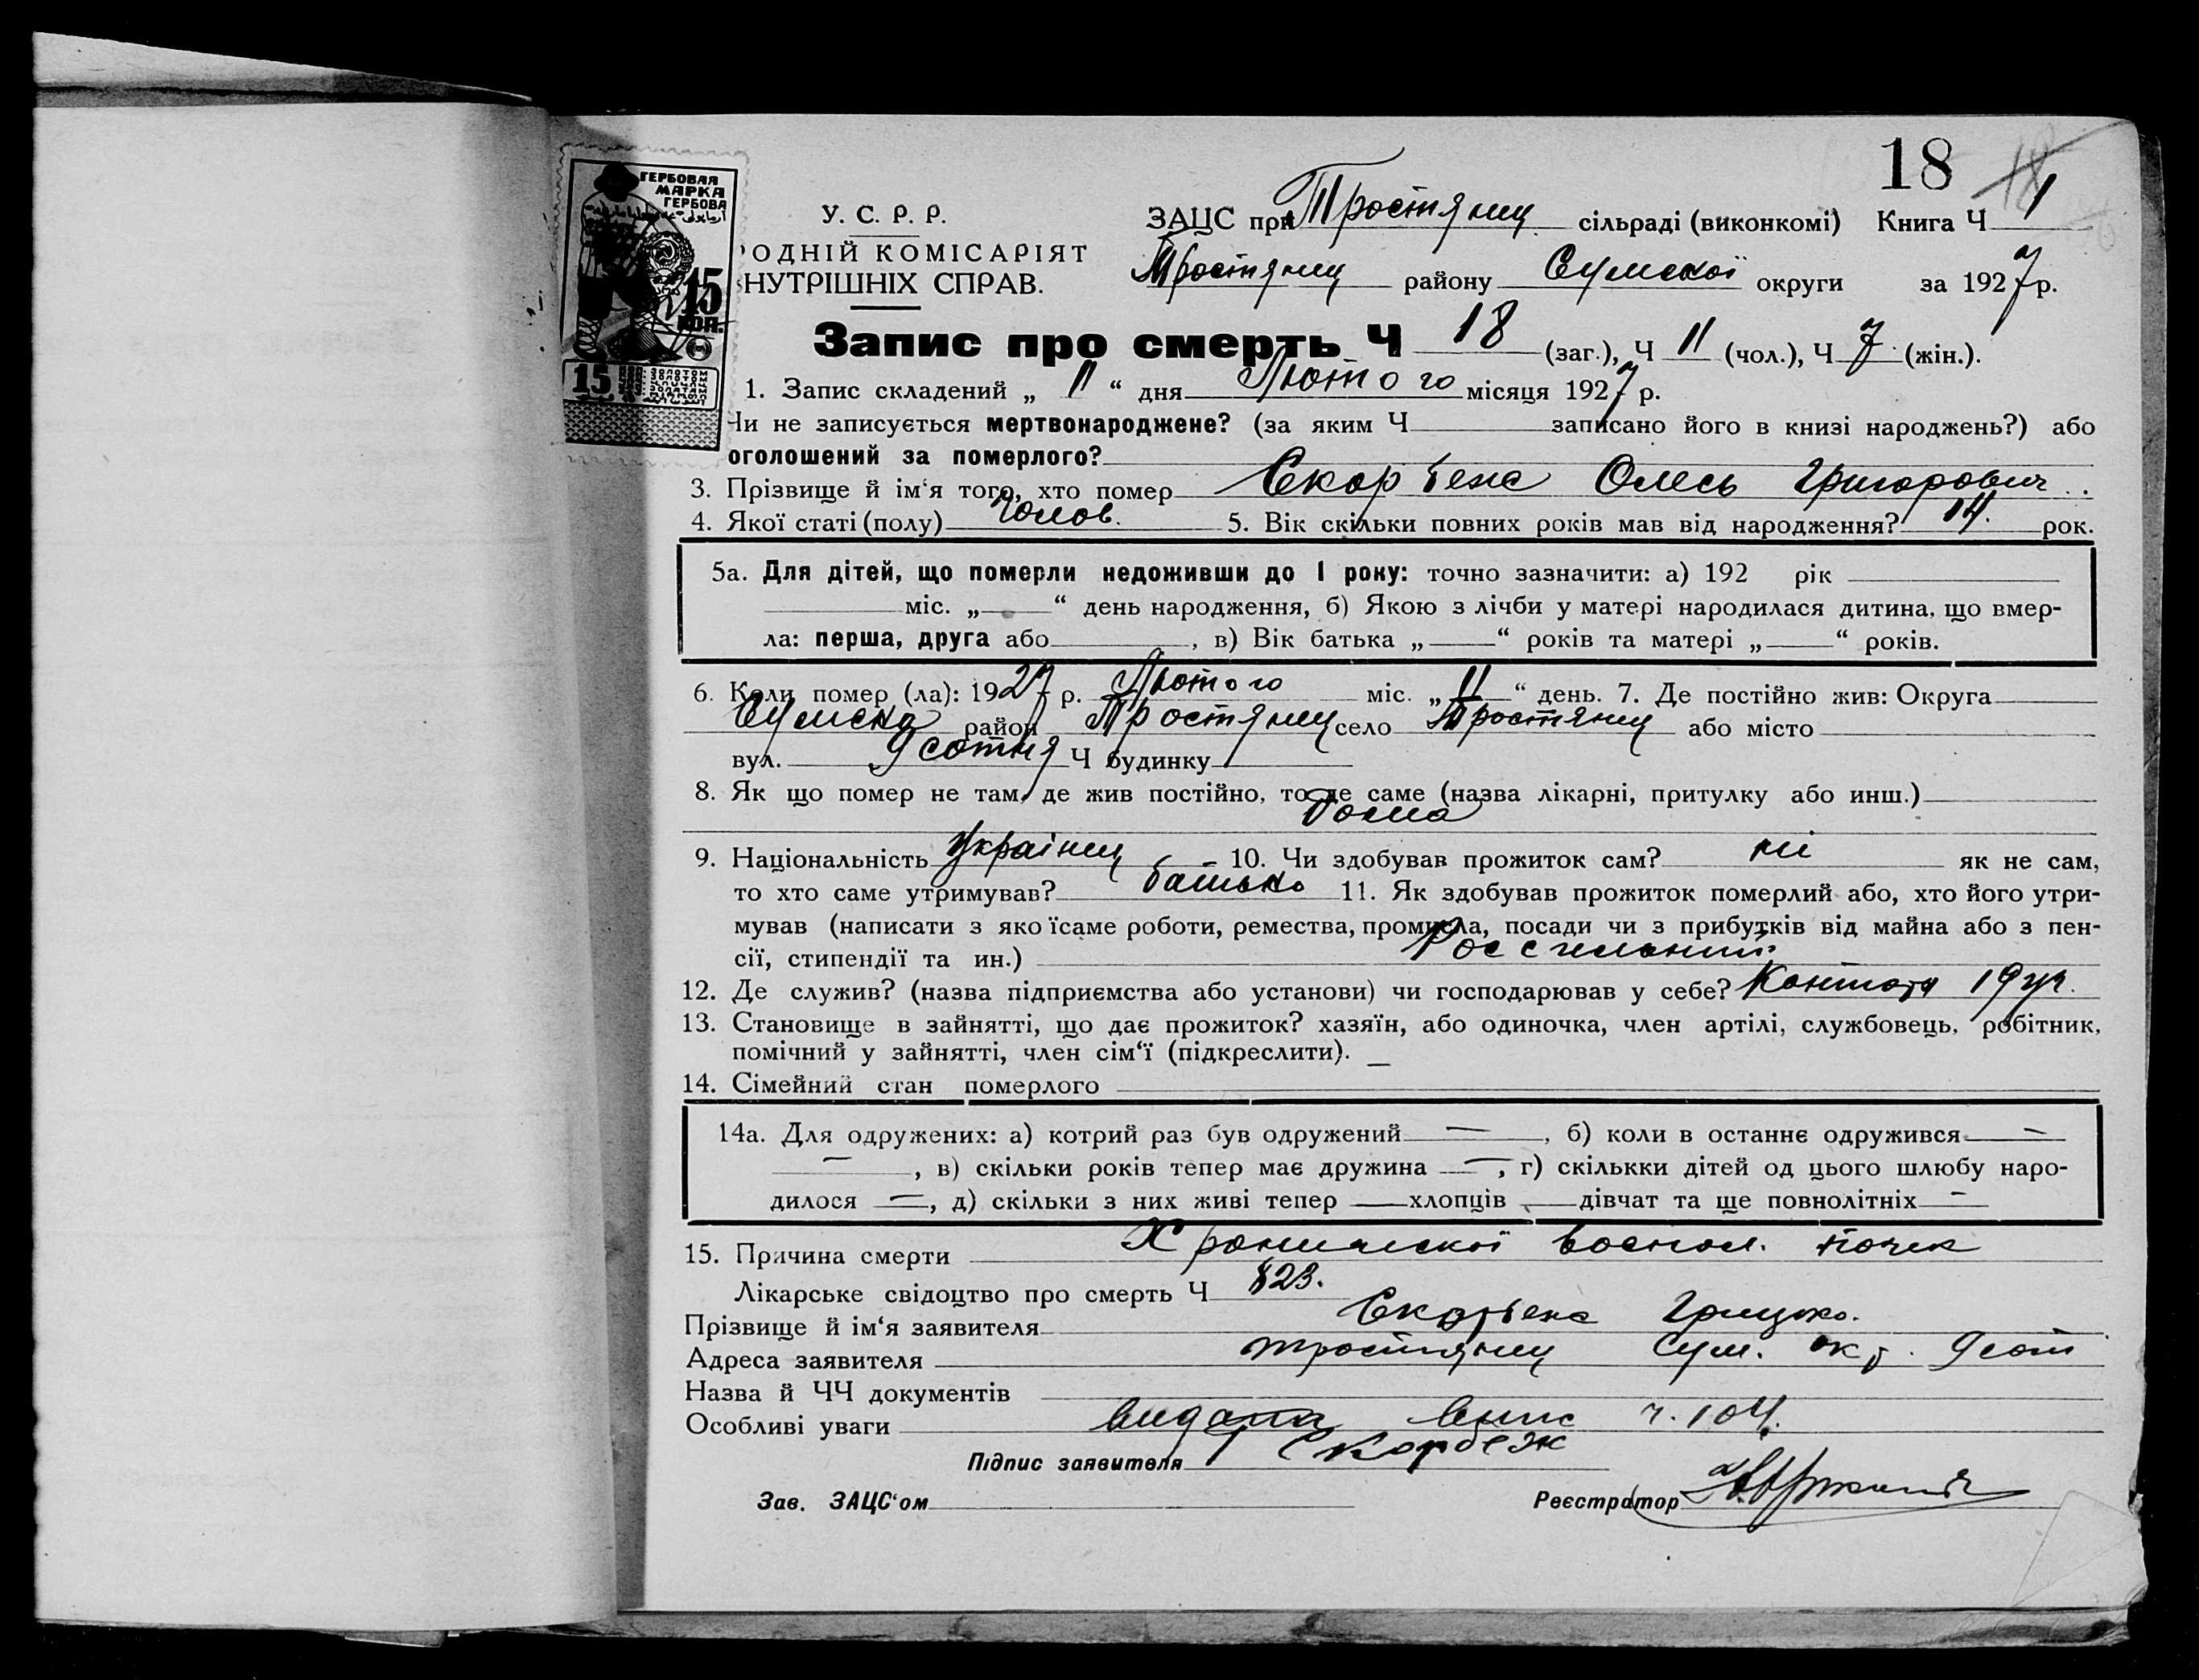 18 18
ГЕРБОВАЯ
МАРКА
ГЕРБОВА
15
КОП.
15
У. С. Р. Р.
ЗАЦС при Тростянец сільраді (виконкомі) Книга Ч 1
РОДНІЙ КОМІСАРІЯТ
Тростянец району Сумской округи за 1927 р.
НУТРІШНІХ СПРАВ.
Запис про смерть Ч 18 (заг.), Ч 11 (чол.), Ч 7 (жін.).
1. Запис складений „ 11 “ дня Лютого місяця 1927 р.
Чи не записується мертвонароджене? (за яким Ч записано його в книзі народжень?) або
оголошений за померлого?
3. Прізвище й ім‘я того, хто помер Скорбенс Олесь Григорович.
4. Якої статі (полу) Чолов. 5. Вік скільки повних років мав від народження? 14. рок.
5а. Для дітей, що померли недоживши до І року: точно зазначити: а) 192 рік
міс. „ “ день народження, б) Якою з лічби у матері народилася дитина, що вмер-
ла: перша, друга або , в) Вік батька „ “ років та матері „ “ років.
6. Коли помер (ла): 1927 р. Лютого міс. „ 11 “ день. 7. Де постійно жив: Округа
Сумска район Тростянец село Тростянец або місто
вул. 9 сотня Ч будинку
8. Як що помер не там, де жив постійно, то де саме (назва лікарні, притулку або инш.)
Дома
9. Національність Українец 10. Чи здобував прожиток сам? ні як не сам,
то хто саме утримував? батько 11. Як здобував прожиток померлий або, хто його утри-
мував (написати з яко їсаме роботи, ремества, промисла, посади чи з прибутків від майна або з пен-
сії, стипендії та ин.)
12. Де служив? (назва підприємства або установи) чи господарював у себе?
13. Становище в зайнятті, що дає прожиток? хазяїн, або одиночка, член артілі, службовець, робітник,
помічний у зайнятті, член сім‘ї (підкреслити). —
14. Сімейний стан померлого
14а. Для одружених: а) котрий раз був одружений — , б) коли в останнє одружився —
— , в) скільки років тепер має дружина — , г) скількки дітей од цього шлюбу наро-
дилося — , д) скільки з них живі тепер хлопців дівчат та ще повнолітніх —
15. Причина смерти Хроническої воспол. почек
Лікарське свідоцтво про смерть Ч 823.
Прізвище й ім‘я заявителя Скорбенс Грицько.
Адреса заявителя Тростянец Сум. окр. 9 сот
Назва й ЧЧ документів
Особливі уваги ч. 104.
Підпис заявителя Скорбеж
Зав. ЗАЦС‘ом Реєстратор